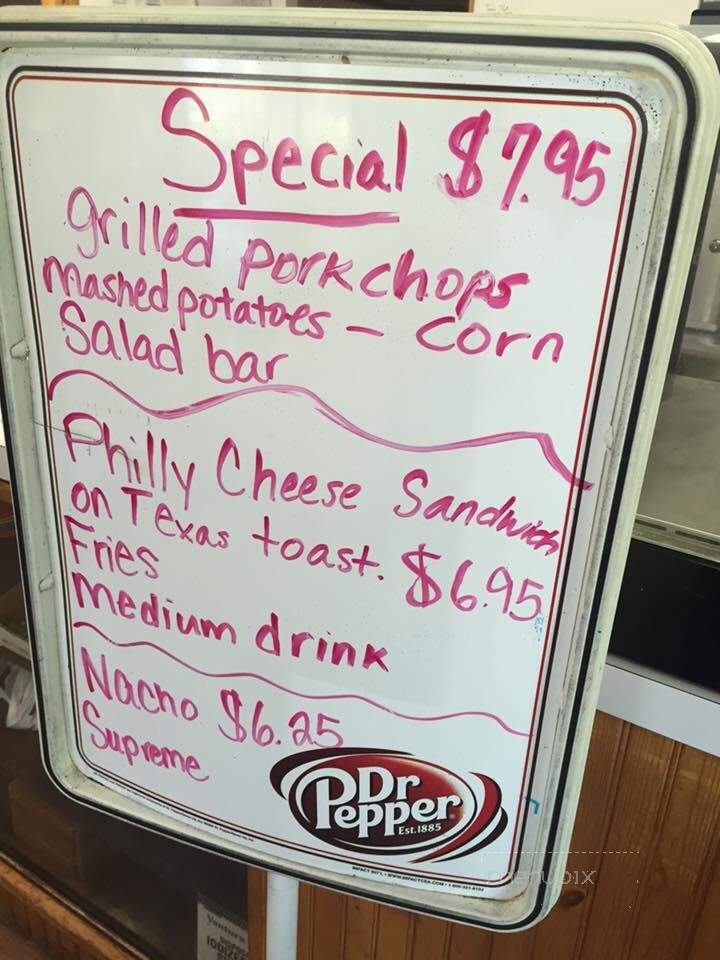 Special $7.95
grilled porkchops
mashed potatoes - corn
Salad bar
Philly Cheese Sandwich
on Texas toast. $6.95
Fries
medium drink
Nacho $6.25
Supreme
Dr
Pepper
Est.1885
menupix
Venture
IODIZED